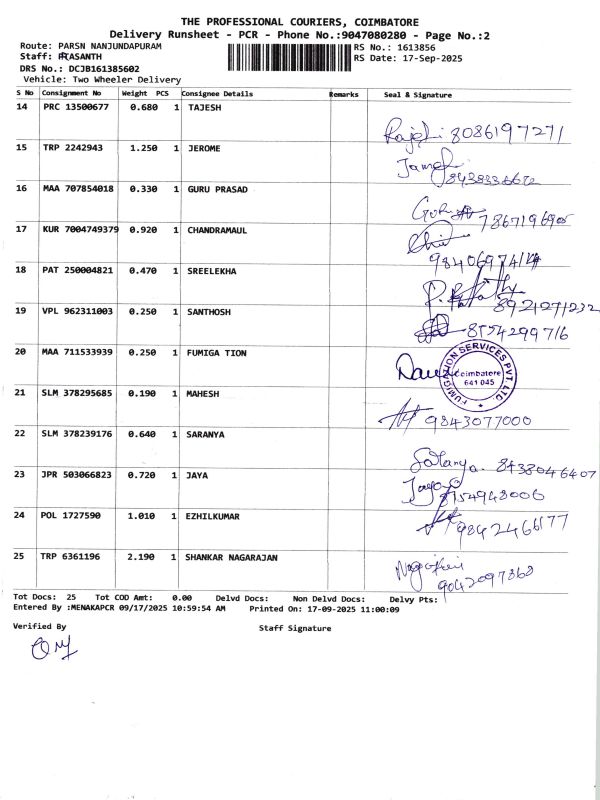 THE PROFESSIONAL COURIERS, COIMBATORE
Delivery Runsheet - PCR - Phone No.:9047080280 - Page No.:2
Route: PARSN NANJUNDAPURAM
RS No.: 1613856
Staff: PRASANTH
RS Date: 17-Sep-2025
DRS No.: DCJB161385602
Vehicle: Two Wheeler Delivery
S No Consignment No Weight PCS Consignee Details Remarks Seal & Signature
14 PRC 13500677 0.680 1 TAJESH
8086197271
15 TRP 2242943 1.250 1 JEROME
16 MAA 707854018 0.330 1 GURU PRASAD
17 KUR 7004749379 0.920 1 CHANDRAMAUL
18 PAT 250004821 0.470 1 SREELEKHA
19 VPL 962311003 0.250 1 SANTHOSH
8754299716
20 MAA 711533939 0.250 1 FUMIGA TION
FUMIGATION SERVICES PVT. LTD.
Coimbatore
641 045
21 SLM 378295685 0.190 1 MAHESH
9843077000
22 SLM 378239176 0.640 1 SARANYA
Saranya. 8438046407
23 JPR 503066823 0.720 1 JAYA
8754948006
24 POL 1727590 1.010 1 EZHILKUMAR
9842466177
25 TRP 6361196 2.190 1 SHANKAR NAGARAJAN
9042097868
Tot Docs: 25 Tot COD Amt: 0.00 Delvd Docs: Non Delvd Docs: Delvy Pts:
Entered By :MENAKAPCR 09/17/2025 10:59:54 AM Printed On: 17-09-2025 11:00:09
Verified By
Staff Signature